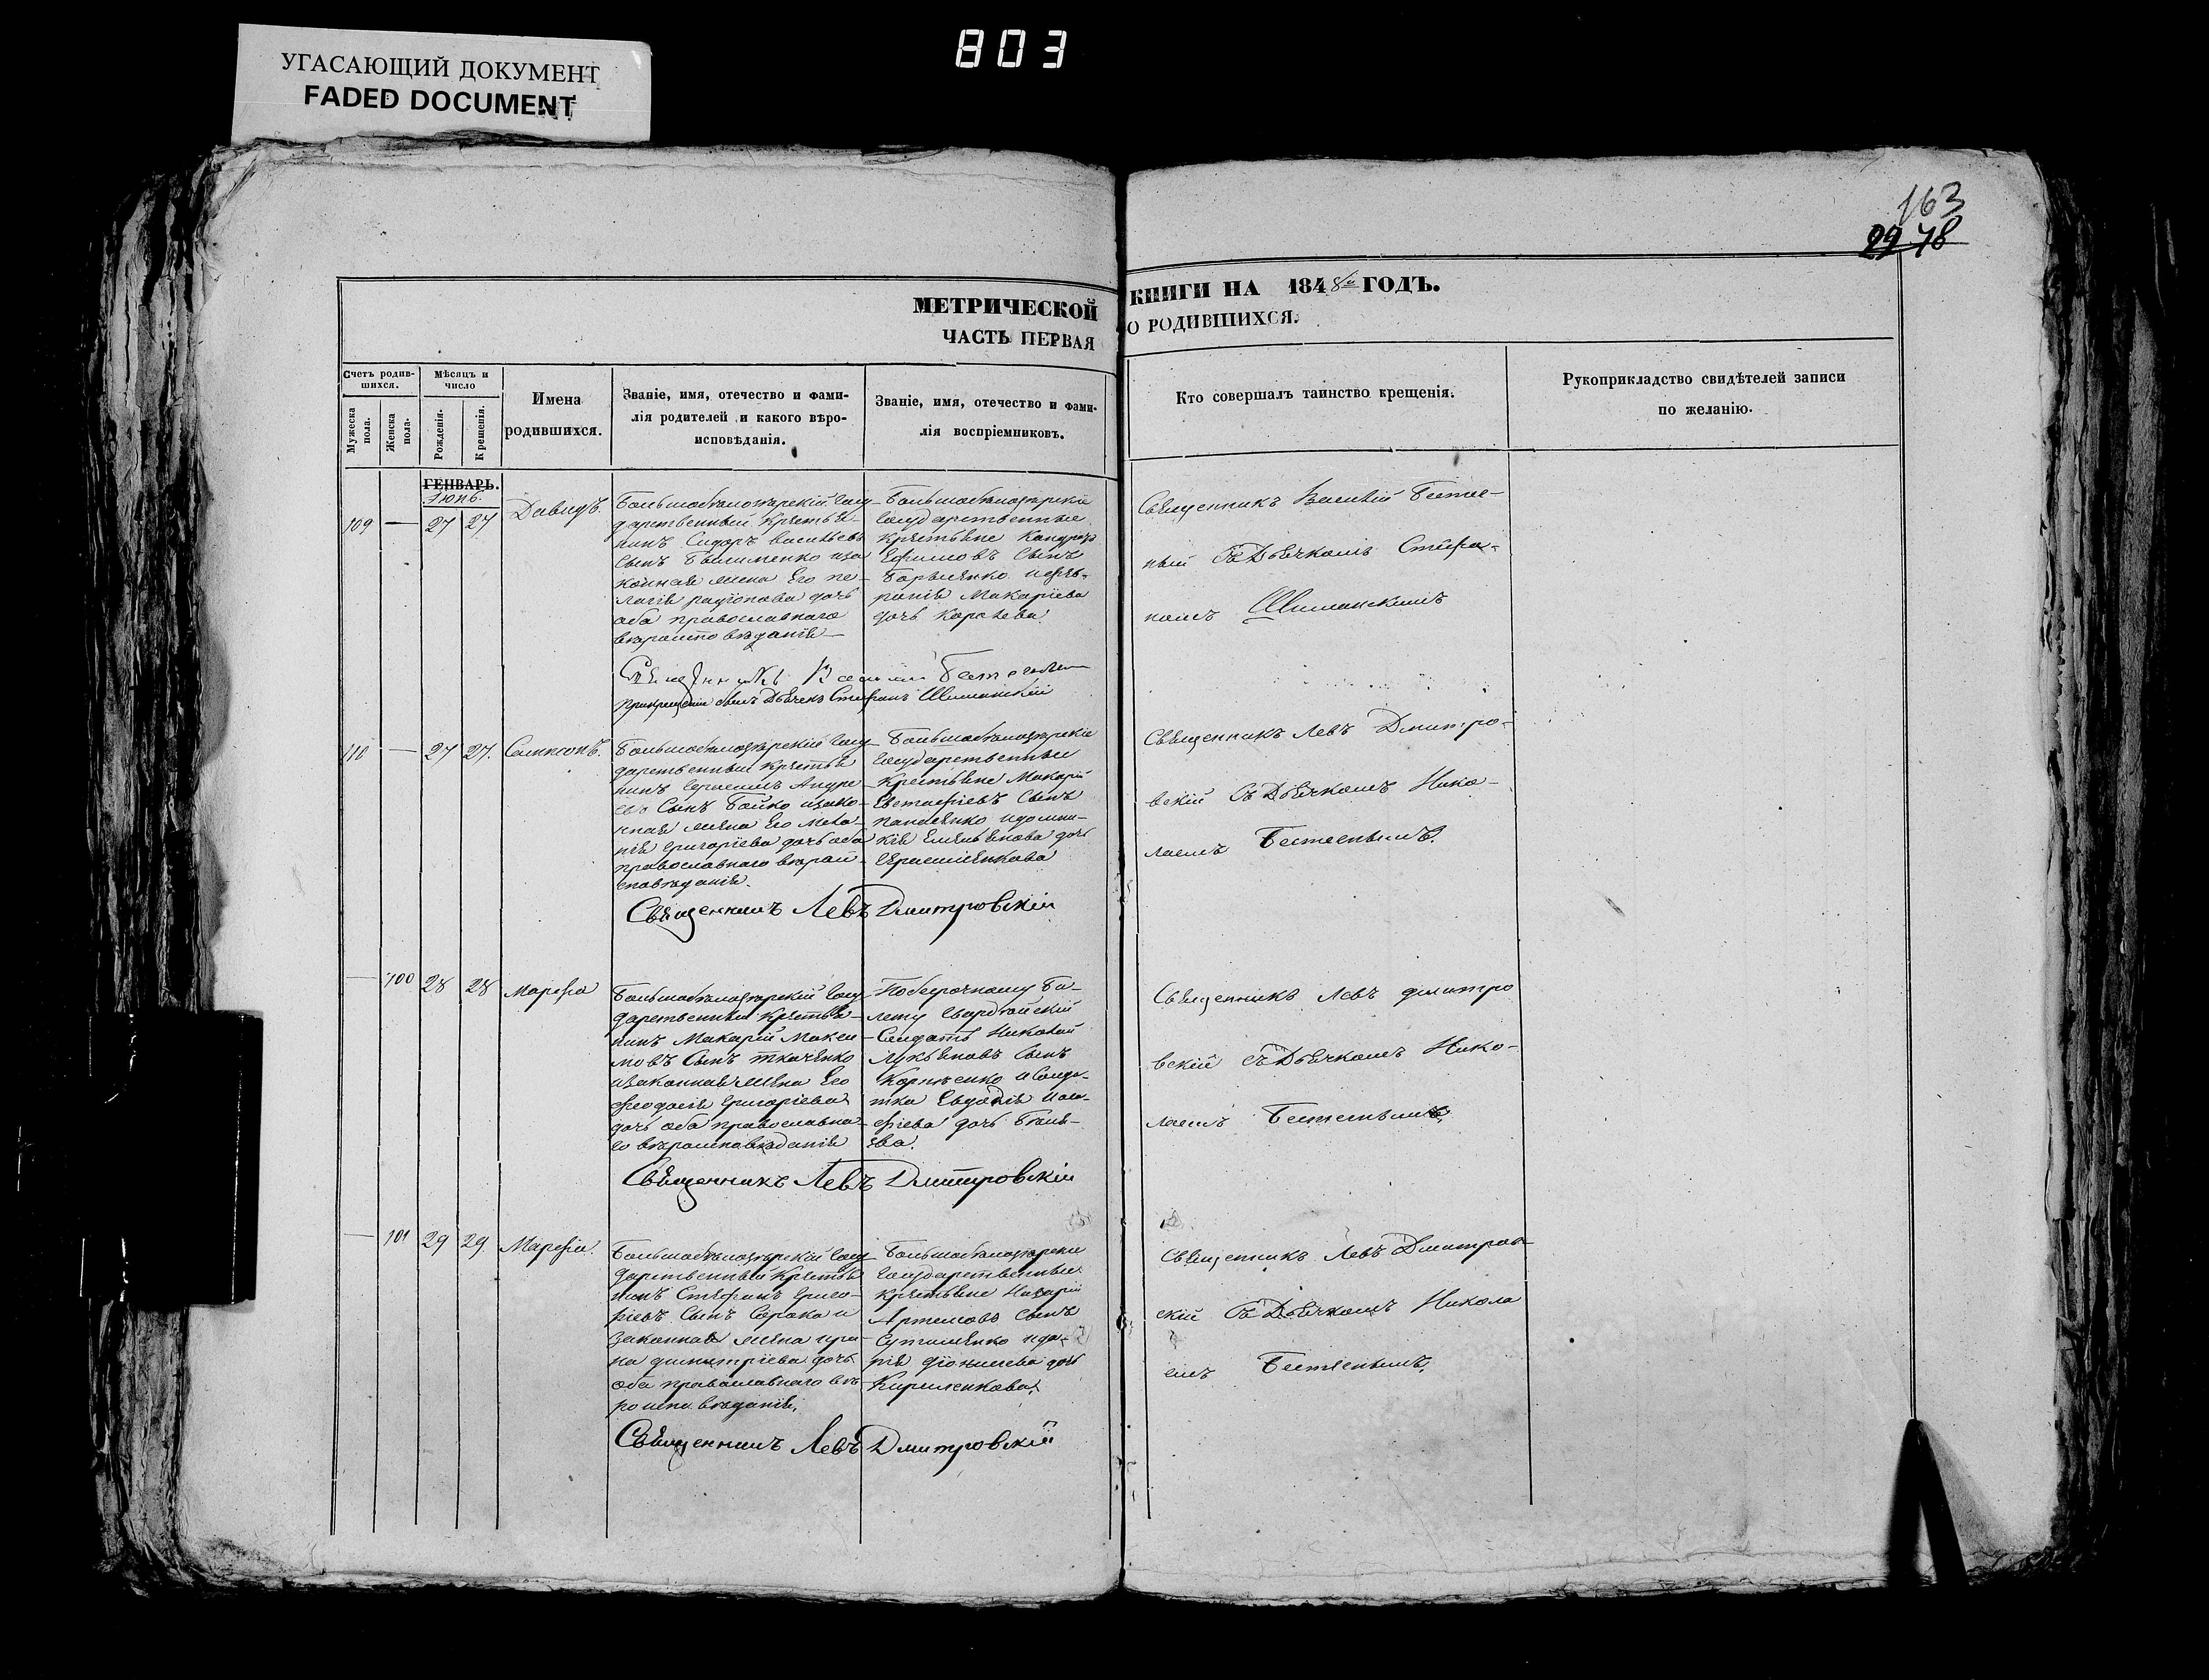 803
УГАСАЮЩИЙ ДОКУМЕНТ
FADED DOCUMENT
163
29 48
МЕТРИЧЕСКОЙ КНИГИ НА 1848й ГОДЪ.
ЧАСТЬ ПЕРВАЯ О РОДИВШИХСЯ.
Счетъ родив-
шихся.
Мужеска
пола.
Женска
пола.
Мѣсяцъ и
число
Рожденія.
Крещенія.
Имена
родившихся.
Званіе, имя, отечество и фами-
лія родителей и какого вѣро-
исповѣданія.
Званіе, имя, отечество и фами-
лія воспріемниковъ.
Кто совершалъ таинство крещенія.
Рукоприкладство свидѣтелей записи
по желанію.
ГЕНВАРЬ.
Іюнь.
109 — 27 27
Давидъ.
Большобѣлозѣрскій Госу-
дарственный Крестья-
нинъ Сидоръ Васильевъ
Сынъ
жена Его Пе-
лагія Радіонова дочь
оба православнаго
вѣроисповѣданія
Большобѣлозѣрскіе
Государственные
Крестьяне
Ефимовъ Сынъ
Макаріева
дочь
Священникъ Василій
съ Дьячкомъ Стефа-
номъ Шиманскимъ
Священникъ Василій
при крещеніи былъ Дьячекъ Стефанъ Шиманскій
110 — 27 27.
Сампсонъ.
Большобѣлозѣрскій Госу-
дарственный Крестья
нинъ Герасимъ Андре
евъ Сынъ Бойко и зако-
нная жена Его Мела-
нія Григоріева дочь оба
православнаго вѣрои-
сповѣданія.
Большобѣлозѣрскіе
Государственные
Крестьяне Макарій
Евстафіевъ Сынъ
Пантенко и Домни-
кія Емельянова дочь
Герасименкова
Священникъ Левъ Дмитро-
вскій съ Дьячкомъ Нико-
лаемъ
Священникъ Левъ Дмитровскій
— 100 28 28
Марѳа
Большобѣлозѣрскій Госу-
дарственный Крестья-
нинъ Макарій Макси
мовъ Сынъ Ткаченко
и законная жена Его
Феодосія Григоріева
дочь оба православна-
го вѣроисповѣданія
По безсрочному Би-
лету Гвардейскій
Солдатъ Николай
Лукьяновъ Сынъ
Корнѣенко и Солда-
тка Евдокія
дочь
ева.
Священникъ Левъ Дмитро
вскій съ Дьячкомъ Нико-
лаемъ
Священникъ Левъ Дмитровскій
— 101 29 29
Марѳа.
Большобѣлозѣрскій Госу-
дарственный Крестья
нинъ Стефанъ Григо-
ріевъ Сынъ Сорока и
законная жена Ири-
на Димитріева дочь
оба православнаго вѣ-
роисповѣданія.
Большобѣлозѣрскіе
Государственные
Крестьяне Назарій
Артемовъ Сынъ
и Да-
рія Діонисіева дочь
Кириленкова.
Священникъ Левъ Дмитров-
скій съ Дьячкомъ Никола
емъ
Священникъ Левъ Дмитровскій